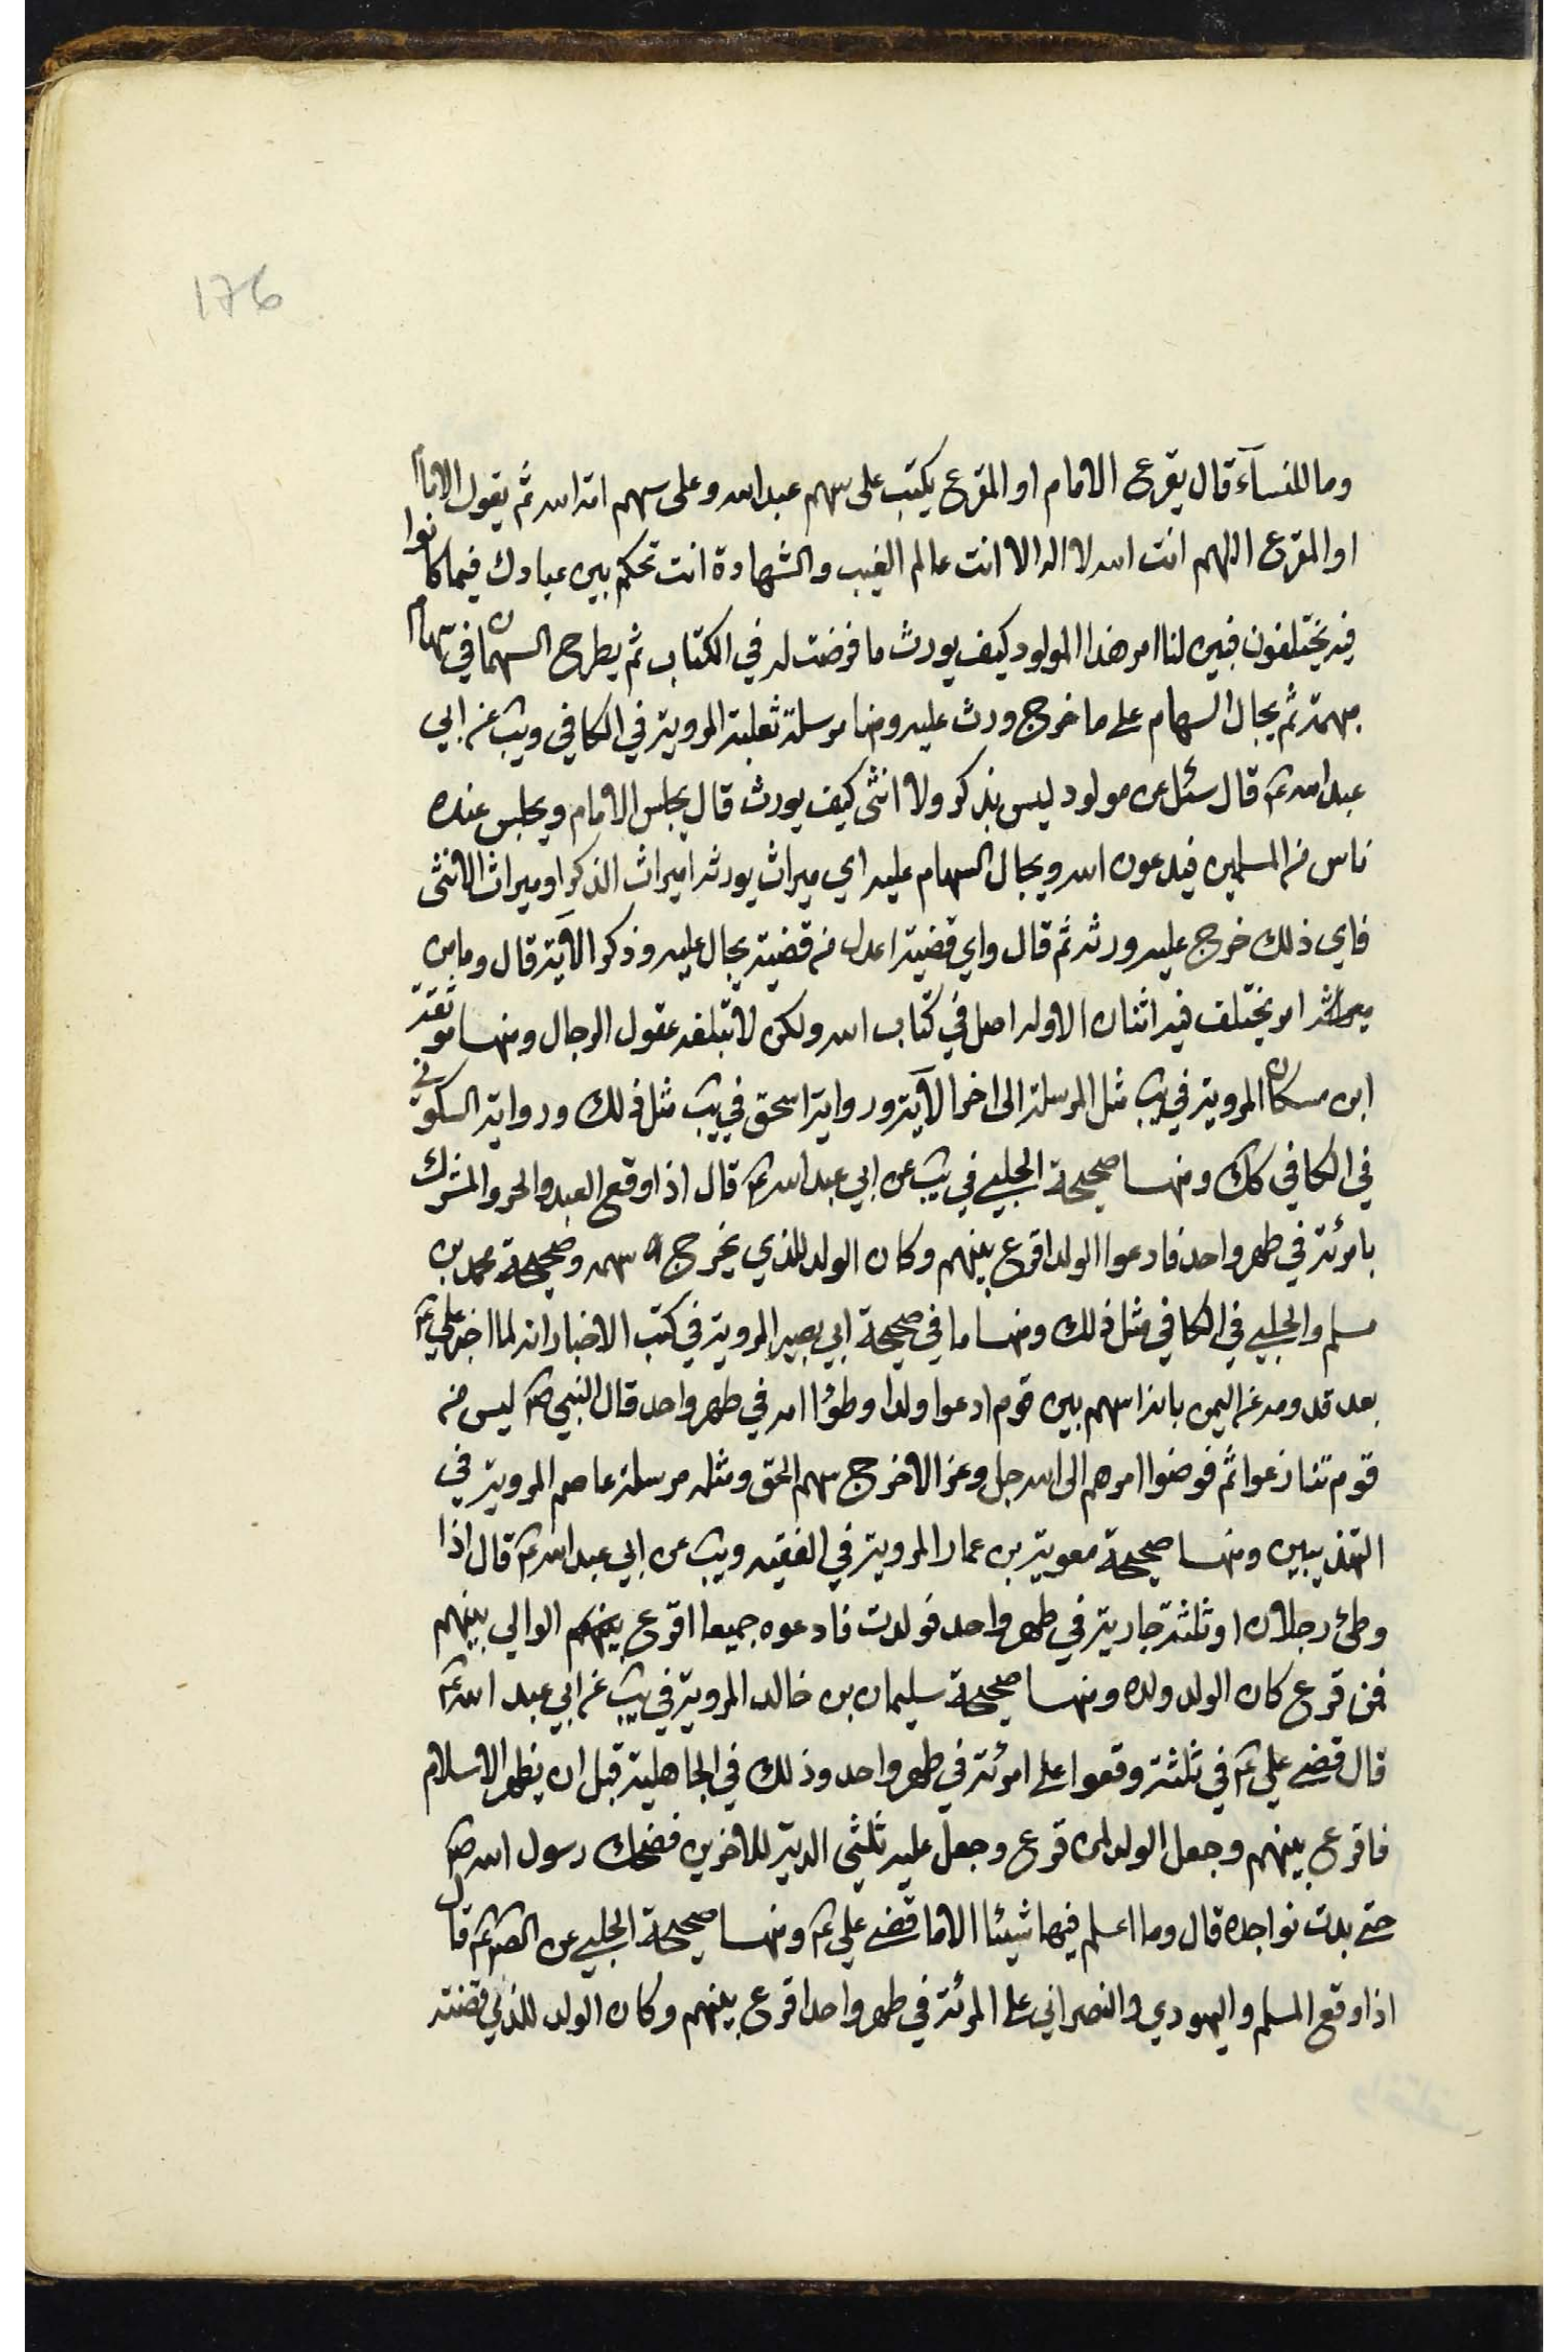 176
وما للنسآء قال يقرع الامام او المقرع يكتب على سهم عبدالله وعلى سهم امة الله ثم يقول الامام
او المقرع اللهم انت الله لا اله الا انت عالم الغيب والشهادة انت تحكم بين عبادك فيما كانوا
فيه يختلفون فبين لنا امر هذا المولود كيف يورث ما فرضت له في الكتاب ثم يطرح السهمان في سهام
مبهمة ثم يجال السهام على ما خرج ورث عليه ومنها مرسلة ثعلبة المروية في الكافي ويب عن ابي
عبد الله ع قال سئل عن مولود ليس بذكر ولا انثى كيف يورث قال يجلس الامام ويجلس عنده
ناس من المسلمين فيدعون الله ويجال السهام عليه اي ميراث يورثه اميراث الذكر او ميراث الانثى
فاي ذلك خرج عليه ورثه ثم قال واي قضية اعدل من قضية يجال عليه وذكر الآية قال وما من
امر يختلف فيه اثنان الا وله اصل في كتاب الله ولكن لا تبلغه عقول الرجال ومنها موثقة
ابن مسكان المروية في يب مثل المرسلة الى اخر الآية ورواية اسحق في يب مثل ذلك ورواية السكوني
في الكافي كك ومنها صحيحة الحلبي في يب عن ابي عبد الله ع قال اذا وقع العبد والحر والمشرك
بامرئة في طهر واحد فادعوا الولد اقرع بينهم وكان الولد للذي يخرج سهمه وصحيحة محمد بن
مسلم والحلبي في الكافي مثل ذلك ومنها ما في صحيحة ابي بصير المروية في كتب الاخبار انه لما اخبر علي ع
بعد قدومه عن اليمن بانه اسهم بين قوم ادعوا ولدا وطؤا امه في طهر واحد قال النبي ص ليس من
قوم تنازعوا ثم فوضوا امرهم الى الله جل وعز الا خرج سهم الحق ومثله مرسلة عاصم المروية في
التهذيبين ومنها صحيحة معوية بن عمار المروية في الفقيه ويب عن ابي عبد الله ع قال اذا
وطئ رجلان او ثلثة جارية في طهر واحد فولدت فادعوه جميعا اقرع الوالي بينهم
فمن قرع كان الولد ولده ومنها صحيحة سليمان بن خالد المروية في يب عن ابي عبد الله ع
قال قضى علي ع في ثلثة وقعوا على امرئة في طهر واحد وذلك في الجاهلية قبل ان يظهر الاسلام
فاقرع بينهم وجعل الولد لمن قرع وجعل عليه ثلثي الدية للاخرين فضحك رسول الله ص
حتى بدت نواجده قال وما اعلم فيها شيئا الا ما قضى علي ع ومنها صحيحة الحلبي عن الص ع قال
اذا وقع المسلم واليهودي والنصراني على المرئة في طهر واحد اقرع بينهم وكان الولد للذي